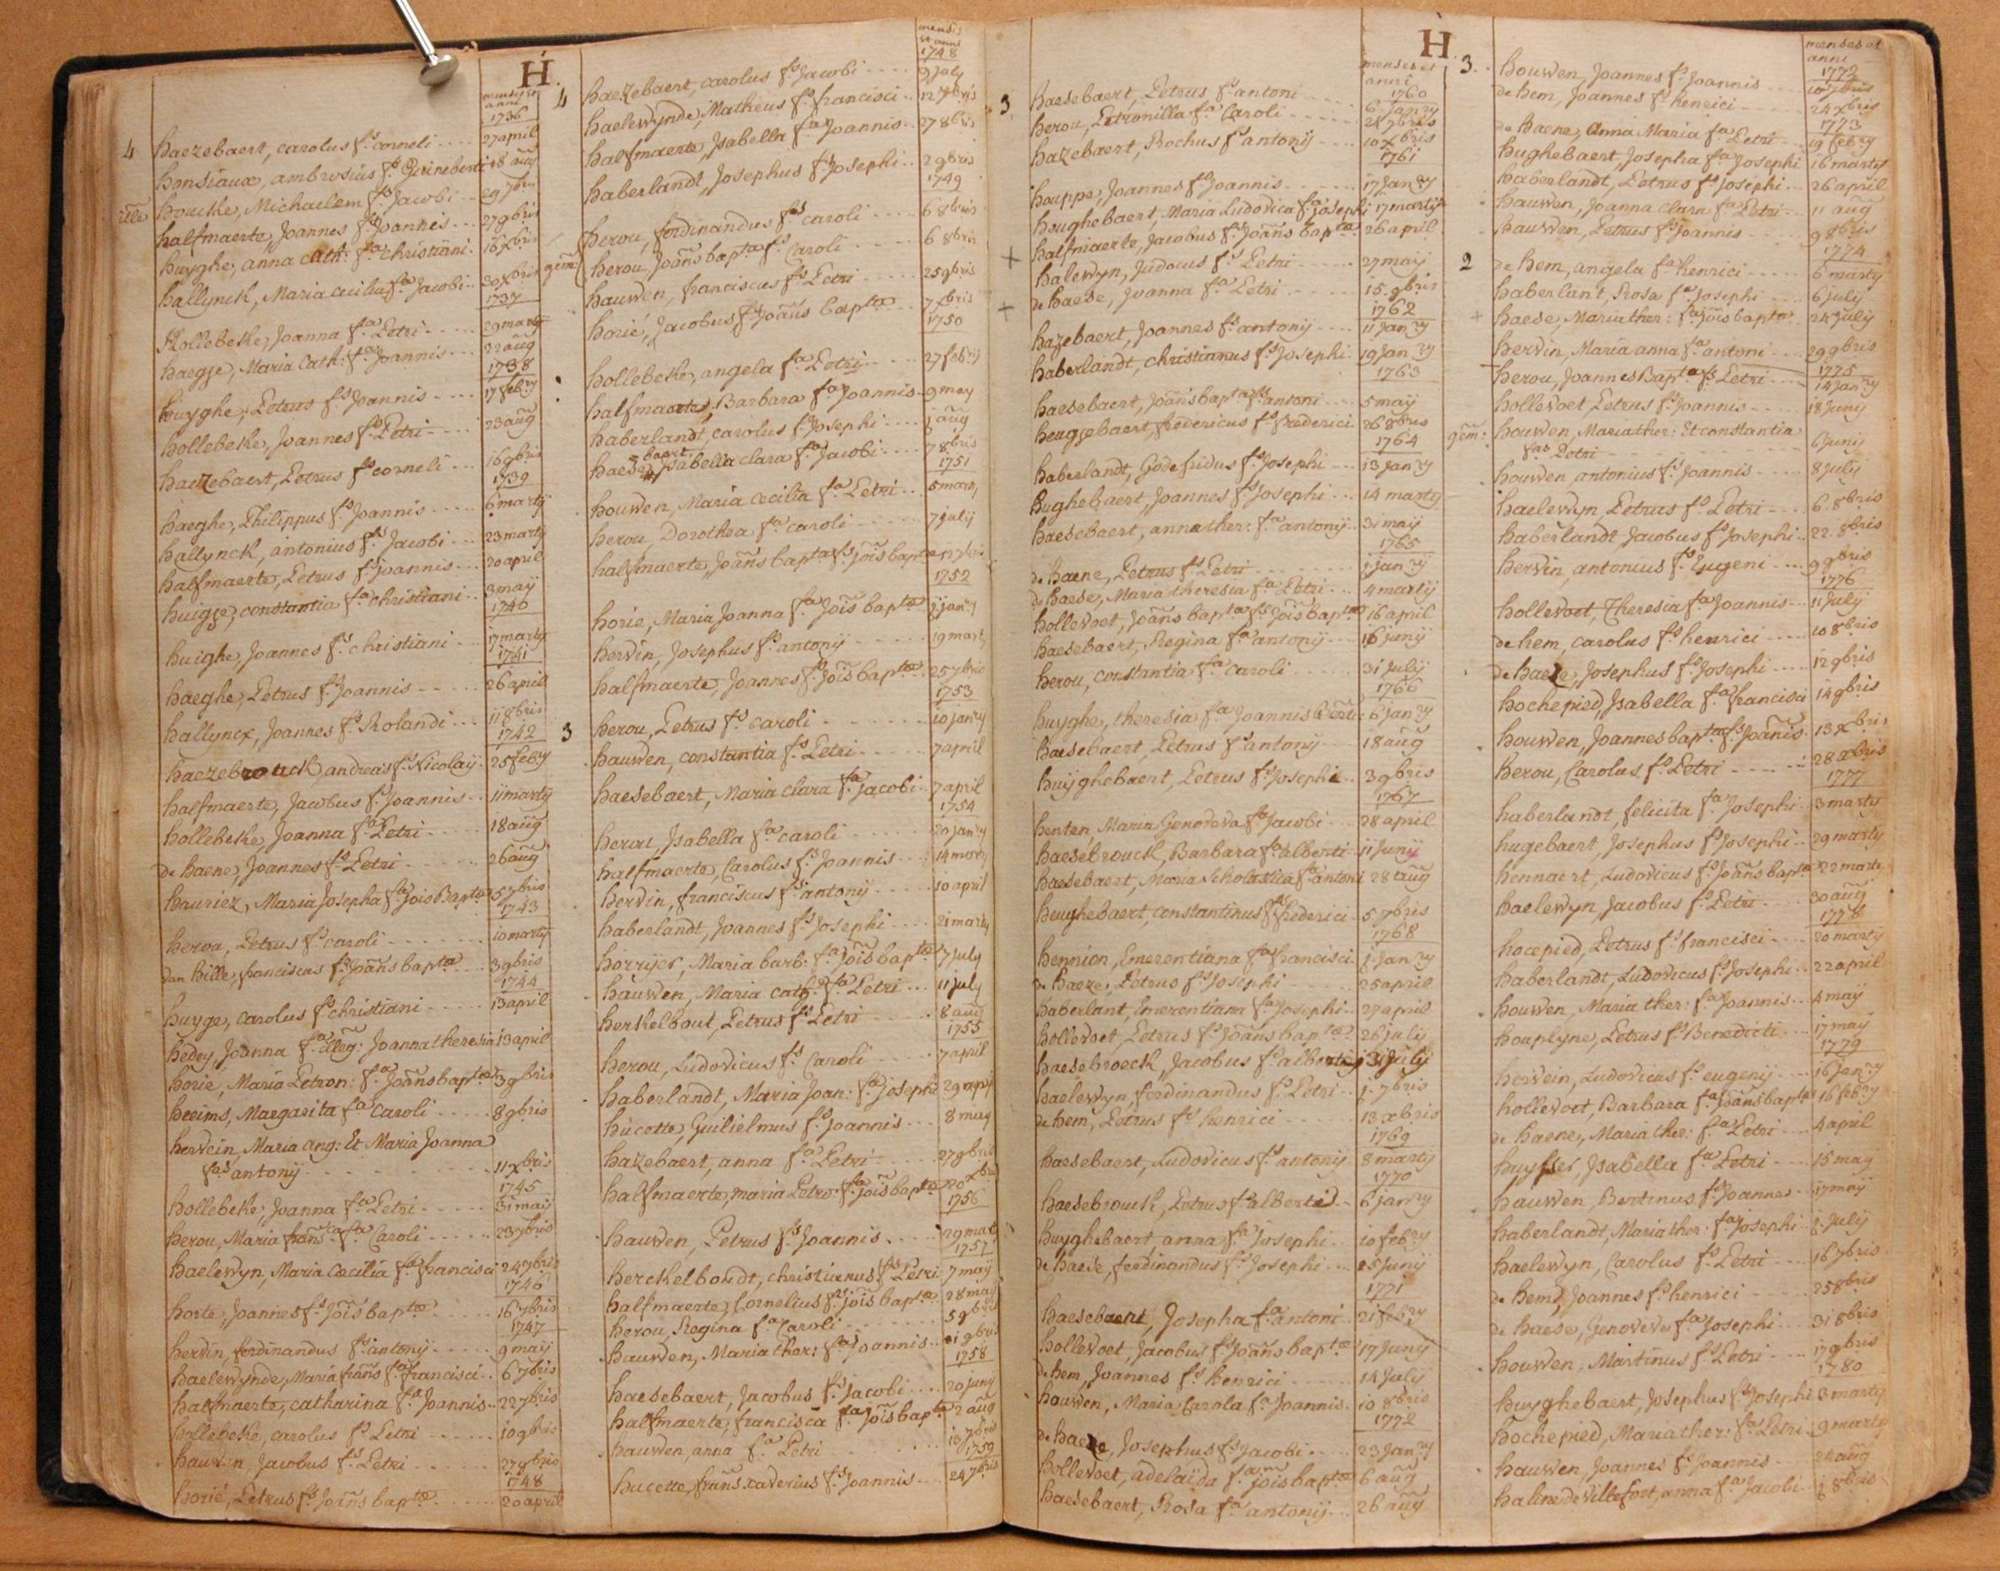 H.
mensis et
anni
1736
4 haezebaert, carolus fs corneli 27 april
honsiaux, ambrosius fs 18 aug
houcke, Michaelem fs Jacobi 29 7bris
halfmaerte, Joannes fs Joannis 27 9bris
huyghe, anna cath: fa christiani 16 xbris
hallynck, Maria cecilia fa Jacobi 20 xbris
1737
Hollebeke, Joanna fa Petri 29 marty
haegse, Maria Cath: fa Joannis 22 aug
1738
huyghe, Petrus fs Joannis 17 febry
hollebeke, Joannes fs Petri 23 aug
haezebaert, Petrus fs corneli 16 9bris
1739
haeghe, Philippus fs Joannis 6 marty
hallynck, antonius fs Jacobi 23 marty
halfmaerte, Petrus fs Joannis 20 april
huigse, constantia fa christiani 3 maij
1740
huighe, Joannes fs christiani 17 marty
1741
haeghe, Petrus fs Joannis 26 april
hallyncx, Joannes fs Rolandi 11 8bris
1742
haezebrouck, andreas fs Nicolaij 25 febry
halfmaerte, Jacobus fs Joannis 11 marty
hollebeke, Joanna fa Petri 18 aug
de haene, Joannes fs Petri 26 aug
hauriez, Maria Josepha fa Jois Bapta 5 7bris
1743
herou, Petrus fs caroli 10 marty
van hille, franciscus fs Joans bapta 3 9bris
1744
huyge, carolus fs christiani 13 april
hedey, Joanna fa illeg: Joanna theresia 13 april
horie, Maria Petron: fa Joans bapta 3 9bris
heeims, Margarita fa caroli 8 9bris
hervein, Maria ang: Et Maria Joanna
fae antonij 11 xbris
1745
hollebeke, Joanna fa Petri 31 maij
herou, Maria frans fa Caroli 23 7bris
haelewyn, Maria Caecilia fa francisci 24 7bris
1746
horie, Joannes fs Jois bapta 16 7bris
1747
hervin, ferdinandus fs antonij 9 maij
haelewynde, Maria frans fa francisci 6 7bris
halfmaerte, catharina fa Joannis 22 7bris
hollebeke, carolus fs Petri 10 9bris
hauwen, Jacobus fs Petri 27 9bris
1748
horié, Petrus fs Joans bapta 20 april
mensis
et anni
1748
4 haezebaert, carolus fs Jacobi 9 july
haelewynde, Matheus fs francisci 12 7bris
halfmaerte, Isabella fa Joannis 27 8bris
haberlandt, Josephus fs Josephi 2 9bris
1749
herou, ferdinandus fs caroli 6 8bris
gem: herou, Joans bapta fs Caroli 6 8bris
hauwen, franciscus fs Petri 25 9bris
horié, Jacobus fs Joans bapta 7 xbris
1750
hollebeke, angela fa Petri 27 febry
halfmaerte, Barbara fa Joannis 9 may
haberlandt, carolus fs Josephi 1 aug
haesebaert, Isabella clara fa Jacobi 7 8bris
1751
houwen, Maria Cecilia fa Petri 5 marty
herou, Dorothea fa caroli 7 july
halfmaerte, Joans bapta fs Jois bapta
1752
horie, Maria Joanna fa Jois bapta janry
hervin, Josephus fs antonij 19 marty
halfmaerte, Joannes fs Jois bapta 25 7bris
1753
3 herou, Petrus fs caroli 10 janry
hauwen, constantia fs Petri 7 april
haesebaert, Maria clara fa Jacobi 7 april
1754
herou, Isabella fa caroli 20 janry
halfmaerte, Carolus fs Joannis 14 marty
hervin, franciscus fs antonij 10 april
haberlandt, Joannes fs Josephi 21 marty
horryer, Maria barb: fa Jois bapta 7 july
hauwen, Maria cath: fa Petri 11 july
herkelbout, Petrus fs Petri 8 aug
1755
herou, Ludovicus fs Caroli 7 april
haberlandt, Maria Joan: fa Josephi 29 april
hucette, Guilielmus fs Joannis 8 may
hazebaert, anna fa Petri 27 9bris
halfmaerte, maria Petro: fa Jois bapta 20 xbris
1756
hauwen, Petrus fs Joannis 29 marty
1757
herckelboudt, christianus fs Petri 7 maij
halfmaerte, Cornelius fs Jois bapta 28 maij
herou, Regina fa Caroli 5 9bris
hauwen, Maria ther: fa Joannis 21 9bris
1758
haesebaert, Jacobus fs Jacobi 20 juny
halfmaerte, francisca fa Jois bapta 2 aug
hauwen, anna fa Petri 10 7bris
1759
hucette, frans xaverius fs Joannis 24 7bris
H.
menses et
anni
1760
3 haesebaert, Petrus fs antoni 6 janry
herou, Petronilla fa Caroli 21 7bris
hazebaert, Rochus fs antonij 10 xbris
1761
houppe, Joannes fs Joannis 17 janry
houghebaert, Maria Ludovica fa Josephi 17 marty
halfmaerte, Jacobus fs Joans bapta 26 april
+ halewyn, Judocus fs Petri 27 maij
+ de haese, Joanna fa Petri 15 9bris
1762
hazebaert, Joannes fs antonij 11 janry
haberlandt, christianus fs Josephi 19 janry
1763
haesebaert, Joans bapta fs antoni 5 maij
heugsebaert, fredericus fs frederici 26 8bris
1764
haberlandt, Godefridus fs Josephi 13 janry
hughebaert, Joannes fs Josephi 14 marty
haesebaert, anna ther: fa antonij 31 maij
1765
de haene, Petrus fs Petri 1 janry
de haese, Maria theresia fa Petri 4 marty
hollevoet, Joans bapta fs Jois bapta 16 april
haesebaert, Regina fa antonij 16 juny
herou, constantia fa caroli 31 july
1766
huyghe, theresia fa Joannis 6 janry
haesebaert, Petrus fs antonij 18 aug
huijghebaert, Petrus fs Josephi 3 9bris
1767
henten, Maria Genoveva fa Jacobi 28 april
haesebrouck, Barbara fa alberti 11 juny
haesebaert, Maria Scholastica fa antoni 28 aug
heughebaert, constantinus fs frederici 5 7bris
1768
hennion, Emerentiana fa francisci 1 janry
de haeze, Petrus fs Josephi 25 april
haberlant, Emerentiana fa Josephi 27 april
hollevoet, Petrus fs Joans bapta 26 july
haesebroeck, Jacobus fs alberti 31 july
haelewyn, ferdinandus fs Petri 1 7bris
de hem, Petrus fs henrici 13 xbris
1769
haesebaert, Ludovicus fs antonij 8 marty
1770
haesebrouck, Petrus fs alberti 6 janry
huyghebaert anna fa Josephi 10 febry
de haese, ferdinandus fs Josephi 25 juny
1771
haesebaert, Josepha fa antoni 21 febry
hollevoet, Jacobus fs Joans bapta 17 juny
de hem, Joannes fs henrici 14 july
houwen, Maria Carola fa Joannis 10 8bris
1772
de haeze, Josephus fs Jacobi 23 janry
hollevoet, adelaida fa Jois bapta 6 aug
haesebaert, Rosa fa antonij 26 aug
menses et
anni
1772
3. houwen, Joannes fs Joannis 10 7bris
de hem, Joannes fs henrici 24 xbris
1773
de haene, Anna Maria fa Petri 19 febry
hughebaert, Josepha fa Josephi 16 marty
haberlandt, Petrus fs Josephi 26 april
hauwen, Joanna Clara fa Petri 11 aug
hauwen, Petrus fs Joannis 9 8bris
1774
2 de hem, angela fa henrici 6 marty
haberlant, Rosa fa Josephi 6 july
haese, Maria ther: fa Jois bapta 24 july
hervin, Maria anna fa antoni 29 9bris
1775
herou, Joannes Bapta fs Petri 14 janry
hollevoet, Petrus fs Joannis 18 juny
gem: houwen, Maria ther: Et constantia
fae Petri 6 junij
houwen, antonius fs Joannis 8 july
haelewyn, Petrus fs Petri 6 8bris
haberlandt Jacobus fs Josephi 22 8bris
hervin, antonius fs Eugeni 9 9bris
1776
hollevoet, Theresia fa Joannis 11 july
de hem, carolus fs henrici 10 8bris
de haeze, Josephus fs Josephi 12 9bris
hochepied, Isabella fa francisci 14 9bris
houwen, Joannes bapta fs Joannis 13 xbris
herou, Carolus fs Petri 28 xbris
1777
haberlandt, felicita fa Josephi 3 marty
hugebaert, Josephus fs Josephi 29 marty
hennaert, Ludovicus fs Joans bapta 22 marty
haelewyn, Jacobus fs Petri 30 aug
1778
hocepied, Petrus fs francisci 20 marty
haberlandt, Ludovicus fs Josephi 22 april
houwen, Maria ther: fa Joannis 4 maij
houplyne, Petrus fs Benedicti 17 maij
1779
hervein, Ludovicus fs eugenij 16 janry
hollevoet, Barbara fa Joans bapta 16 febry
de haene, Maria ther: fa Petri 4 april
huysser, Isabella fa Petri 15 maij
hauwen, Bertinus fs Joannes 17 maij
haberlandt, Maria ther: fa Josephi 1 july
haelewyn, Carolus fs Petri 16 7bris
de hem, Joannes fs henrici 25 8bris
de haese, Genoveva fa Josephi 31 8bris
houwen, Martinus fs Petri 17 9bris
1780
huyghebaert, Josephus fs Josephi 3 marty
hochepied, Maria ther: fa Petri 9 marty
hauwen, Joannes fs Joannis 24 aug
haline de Villefort, anna fa Jacobi 1 8bris